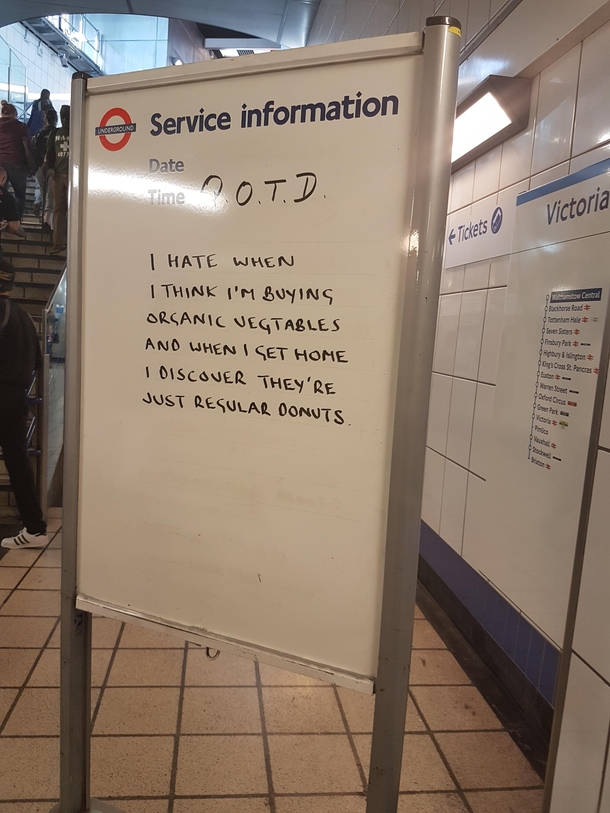 UNDERGROUND
Service information
Date
Time Q.O.T.D.
I HATE WHEN
I THINK I'M BUYING
ORGANIC VEGTABLES
AND WHEN I GET HOME
I DISCOVER THEY'RE
JUST REGULAR DONUTS.
← Tickets
Victoria
Walthamstow Central
Blackhorse Road
Tottenham Hale
Seven Sisters
Finsbury Park
Highbury & Islington
King's Cross St. Pancras
Euston
Warren Street
Oxford Circus
Green Park
Victoria
Pimlico
Vauxhall
Stockwell
Brixton